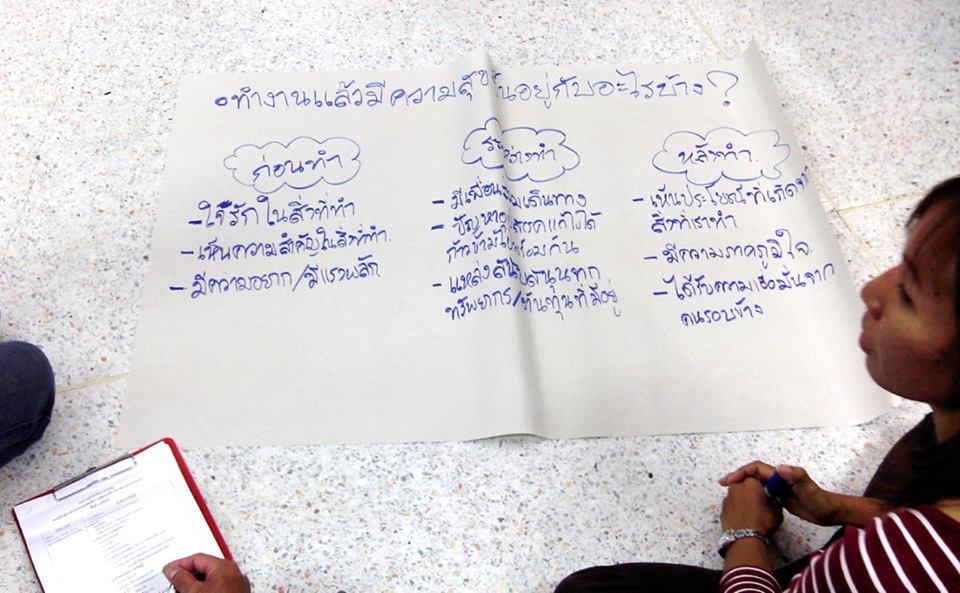 ทำงานแล้วมีความสุขขึ้นอยู่กับอะไรบ้าง?
ก่อนทำ
- ใจรักในสิ่งที่ทำ
- เห็นความสำคัญในสิ่งที่ทำ.
- มีความอยาก/มีแรงผลัก
ระหว่างทำ
- มีเพื่อนร่วมเดินทาง
- ปัญหาอุปสรรคแก้ไขได้
ก้าวข้ามไปพร้อมกัน
- แหล่งสนับสนุนจาก
ทรัพยากร/ต้นทุนที่มีอยู่
หลังทำ.
- เห็นประโยชน์ที่เกิดจาก
สิ่งที่เราทำ
- มีความภาคภูมิใจ.
- ได้รับความเชื่อมั่นจาก
คนรอบข้าง